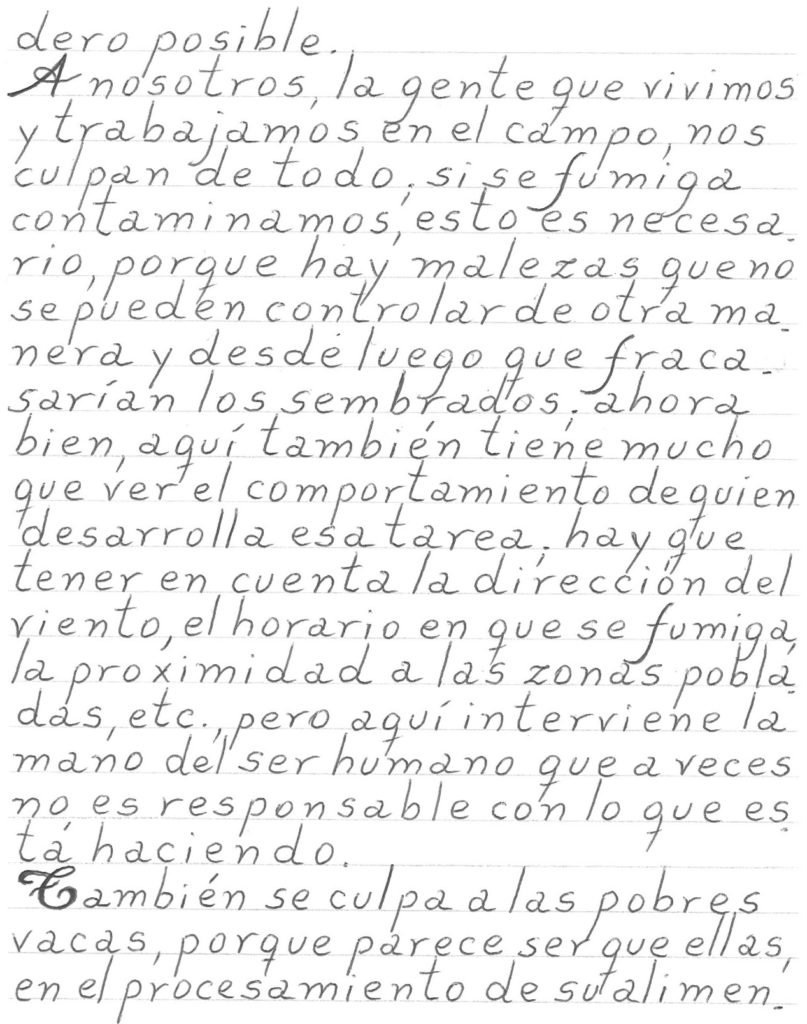 dero posible.
A nosotros, la gente que vivimos
y trabajamos en el campo, nos
culpan de todo; si se fumiga
contaminamos, esto es necesa-
rio, porque hay malezas que no
se pueden controlar de otra ma-
nera y desde luego que fraca-
sarían los sembrados; ahora
bien, aquí también tiene mucho
que ver el comportamiento de quien
desarrolla esa tarea; hay que
tener en cuenta la dirección del
viento, el horario en que se fumiga,
la proximidad a las zonas pobla-
das, etc., pero aquí interviene la
mano del ser humano que a veces
no es responsable con lo que es-
tá haciendo.
También se culpa a las pobres
vacas, porque parece ser que ellas,
en el procesamiento de su alimen-